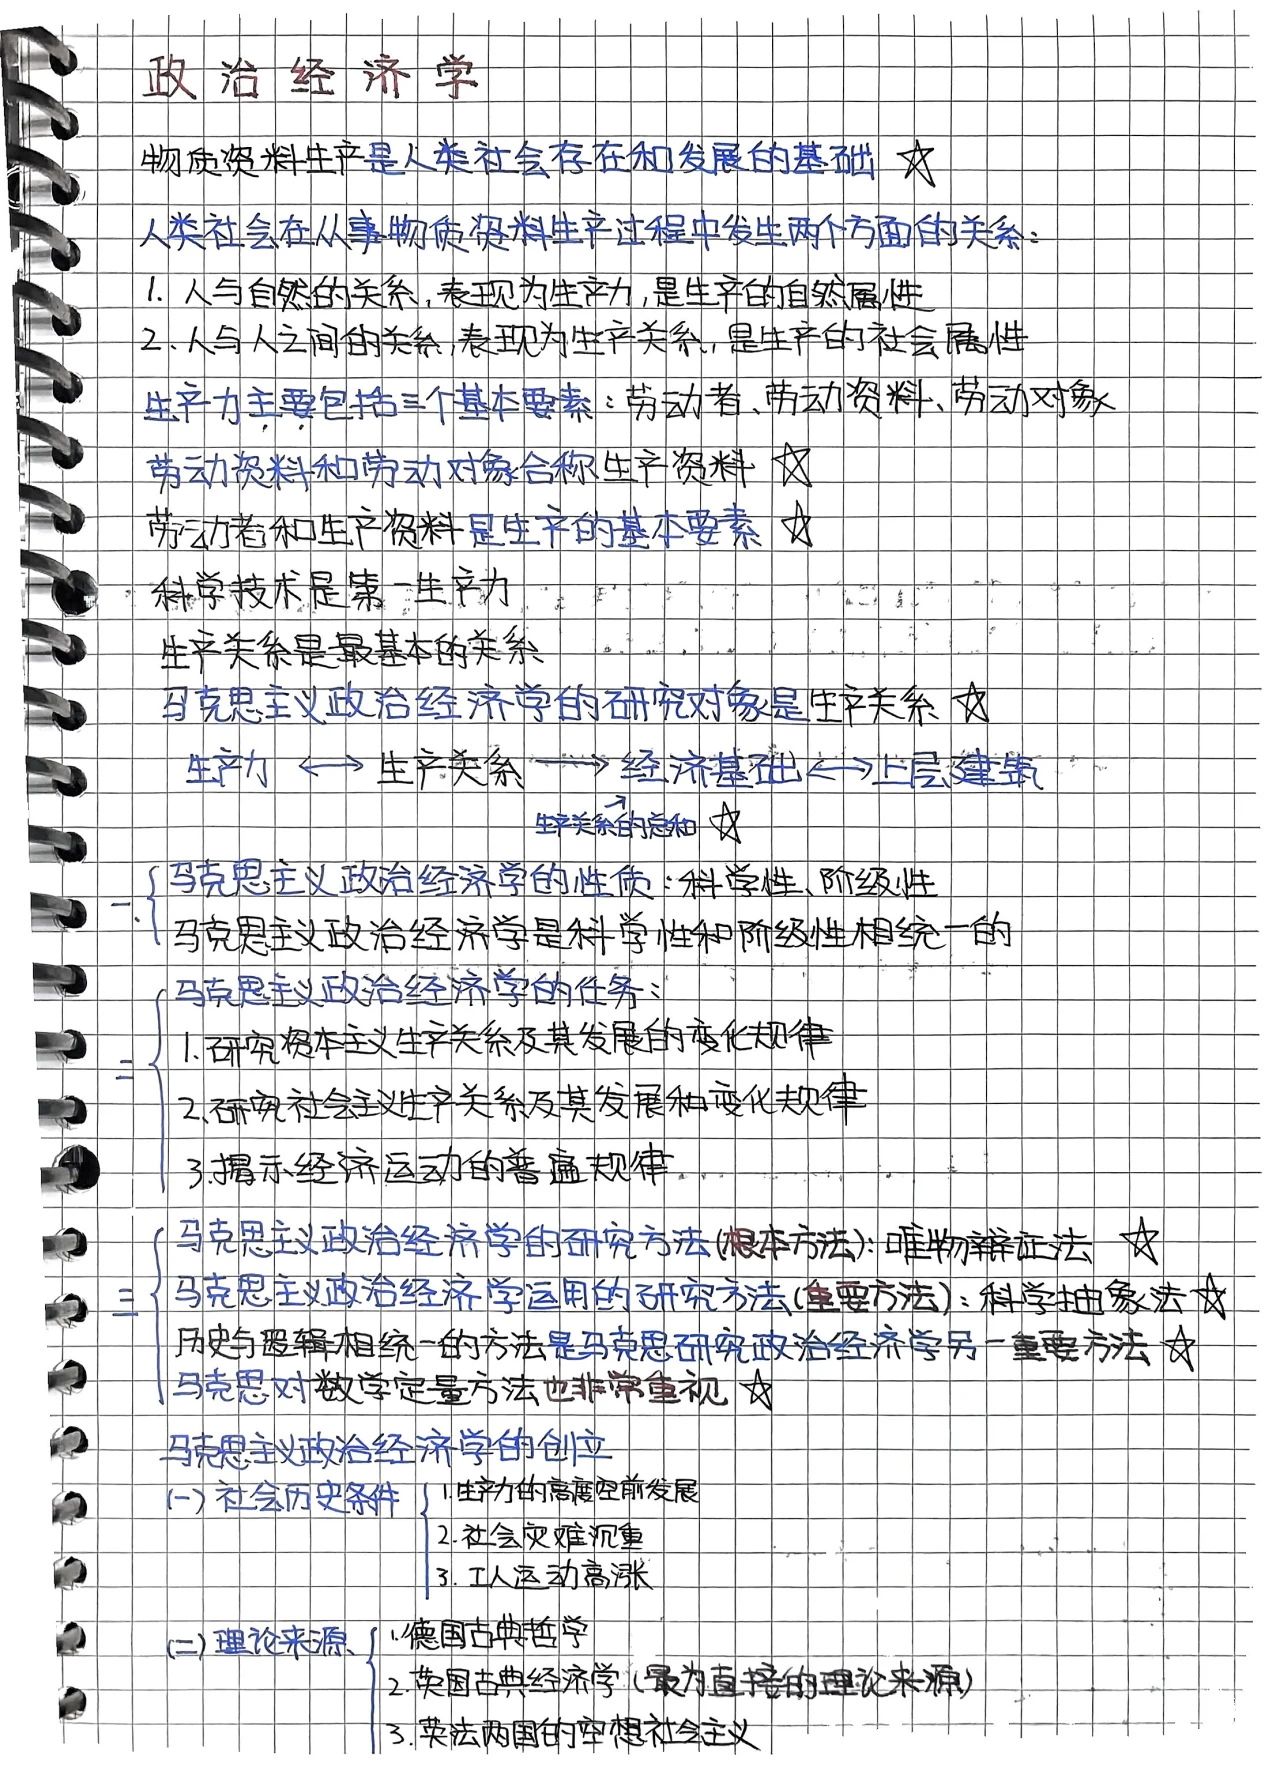 政治经济学
物质资料生产是人类社会存在和发展的基础 ☆
人类社会在从事物质资料生产过程中发生两个方面的关系:
1. 人与自然的关系,表现为生产力,是生产的自然属性
2. 人与人之间的关系,表现为生产关系,是生产的社会属性
生产力主要包括三个基本要素:劳动者、劳动资料、劳动对象
劳动资料和劳动对象合称生产资料 ☆
劳动者和生产资料是生产的基本要素 ☆
科学技术是第一生产力
生产关系是最基本的关系
马克思主义政治经济学的研究对象是生产关系 ☆
生产力 ↔ 生产关系 → 经济基础 ↔ 上层建筑
↗
生产关系的总和 ☆
一. 马克思主义政治经济学的性质:科学性、阶级性
马克思主义政治经济学是科学性和阶级性相统一的
二 马克思主义政治经济学的任务:
1.研究资本主义生产关系及其发展的变化规律
2.研究社会主义生产关系及其发展和变化规律
3.揭示经济运动的普遍规律
三 马克思主义政治经济学的研究方法(根本方法):唯物辩证法 ☆
马克思主义政治经济学运用的研究方法(重要方法):科学抽象法 ☆
历史与逻辑相统一的方法是马克思研究政治经济学另一重要方法 ☆
马克思对数学定量方法也非常重视 ☆
马克思主义政治经济学的创立
(一)社会历史条件 1.生产力的高度空前发展
2.社会灾难沉重
3.工人运动高涨
(二)理论来源、 1.德国古典哲学
2.英国古典经济学(最为直接的理论来源)
3.英法两国的空想社会主义